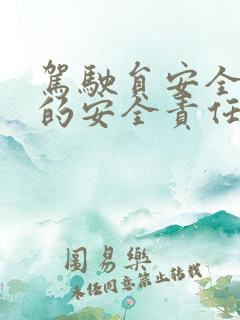 駕駛員安全
的安全責任
圖易樂
未經同意禁止轉載